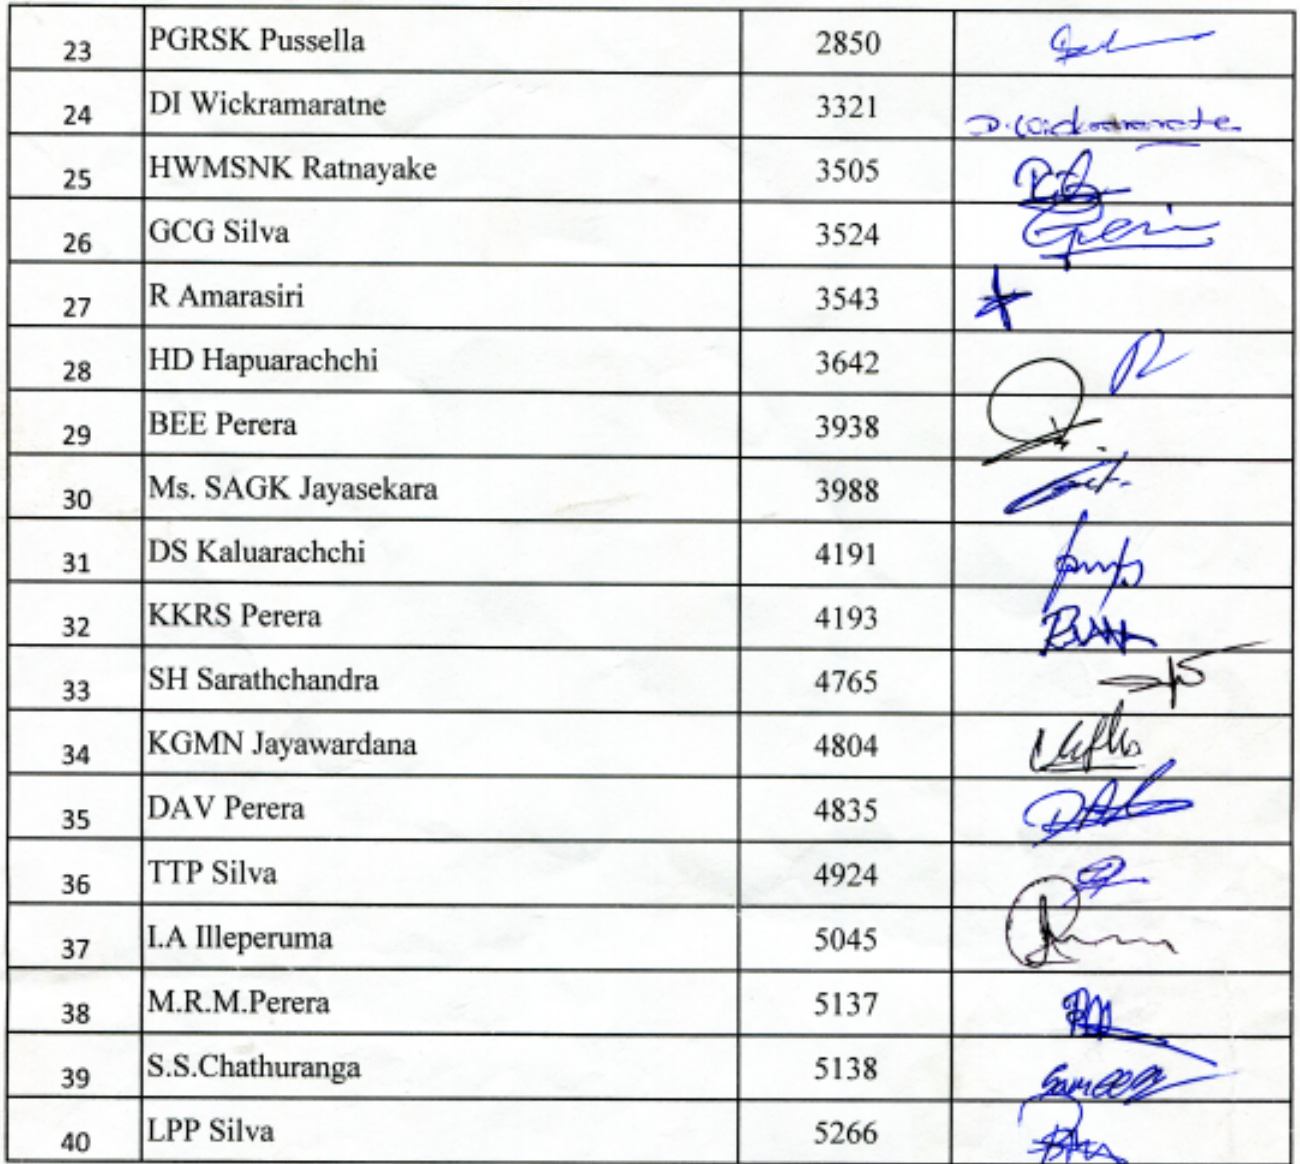 23 PGRSK Pussella 2850
24 DI Wickramaratne 3321 D. Wickramarate
25 HWMSNK Ratnayake 3505
26 GCG Silva 3524
27 R Amarasiri 3543
28 HD Hapuarachchi 3642
29 BEE Perera 3938
30 Ms. SAGK Jayasekara 3988
31 DS Kaluarachchi 4191
32 KKRS Perera 4193
33 SH Sarathchandra 4765
34 KGMN Jayawardana 4804
35 DAV Perera 4835
36 TTP Silva 4924
37 I.A Illeperuma 5045
38 M.R.M.Perera 5137
39 S.S.Chathuranga 5138
40 LPP Silva 5266